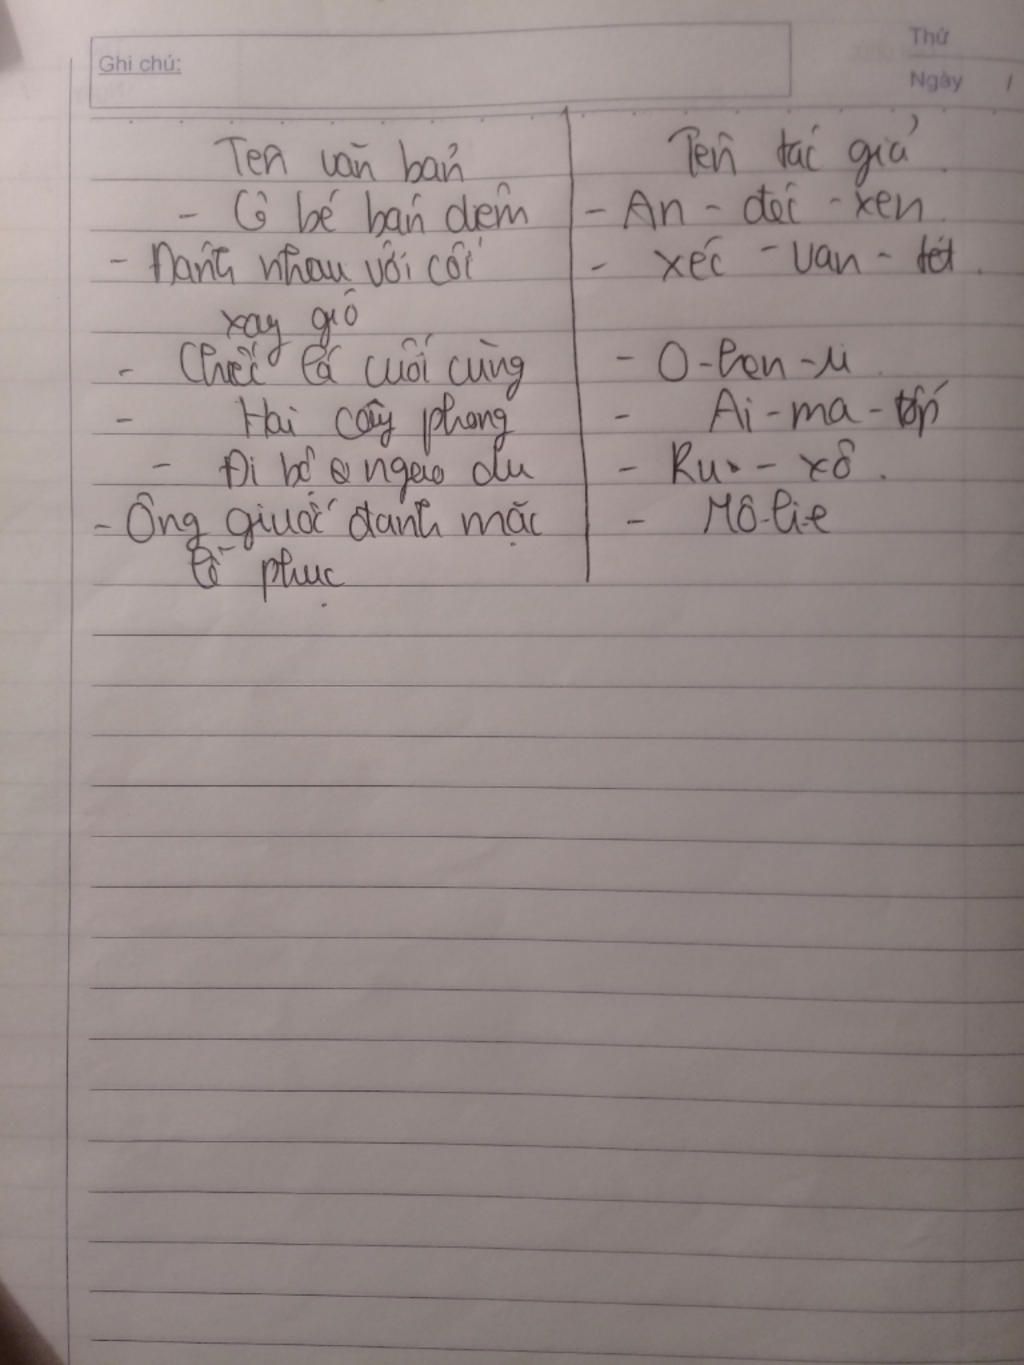 Ghi chú:
Thứ
Ngày /
Tên văn bản
Tên tác giả
- Cô bé bán diêm
- An - đéc - xen
- Đánh nhau với cối
- xéc - van - tét.
xay gió
- Chiếc lá cuối cùng
- O-hen-ri.
- Hai cây phong
- Ai-ma-tốp
- Đi bộ ngao du
- Ru - xô.
- Ông giuốc đanh mặc
- Mô-li-e
lễ phục